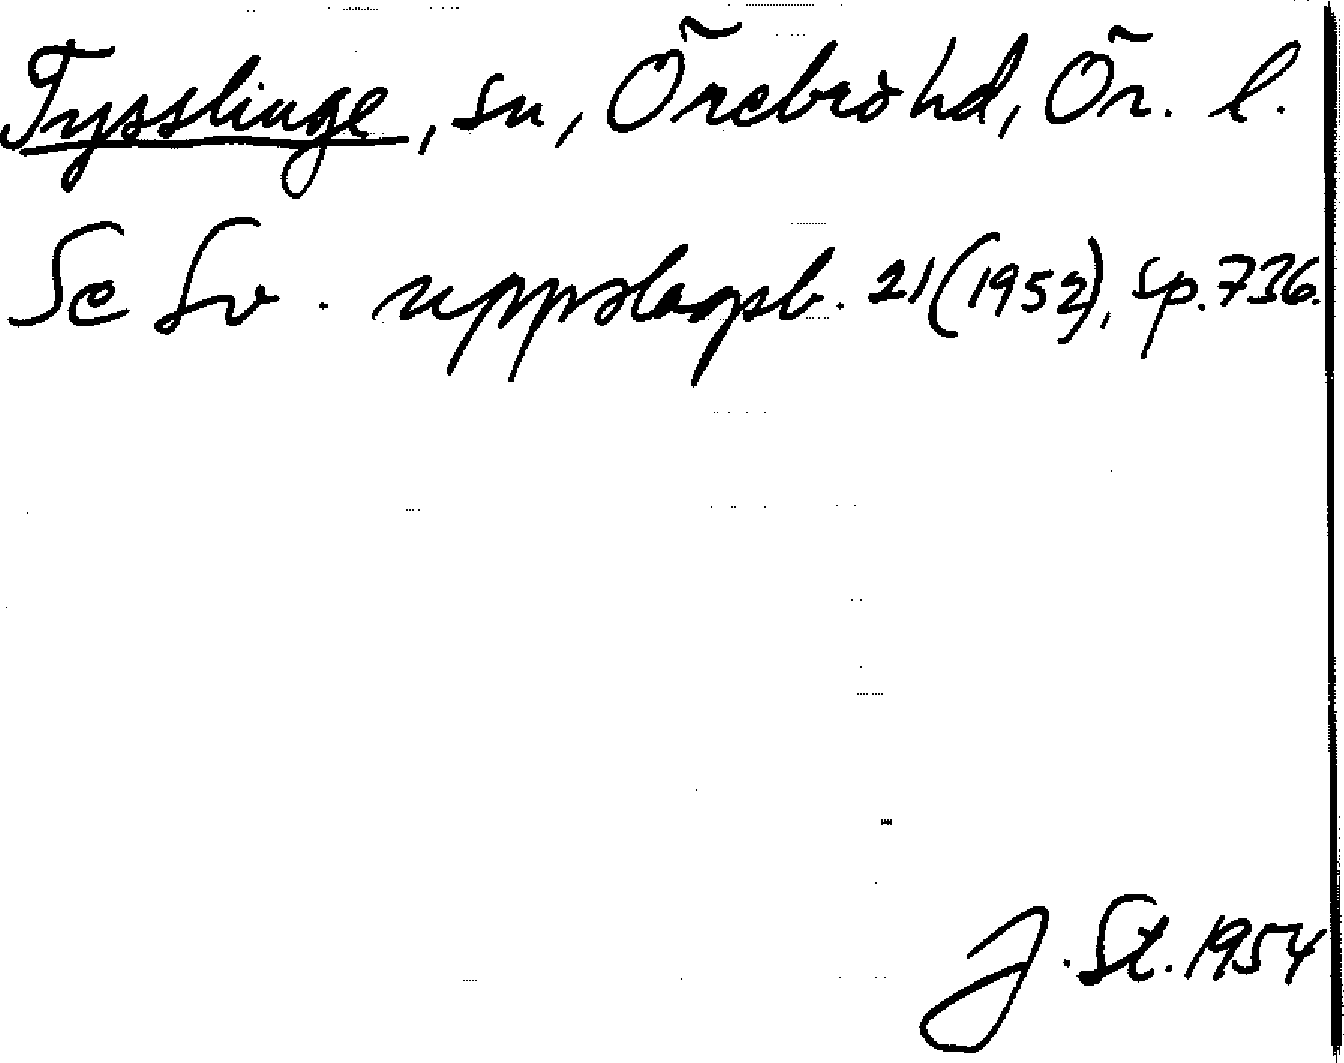 Tysslinge, sn, Örebro hd, Ör. l.
Se Sv. uppslagsb. 21 (1952), sp. 736.
J. St. 1954